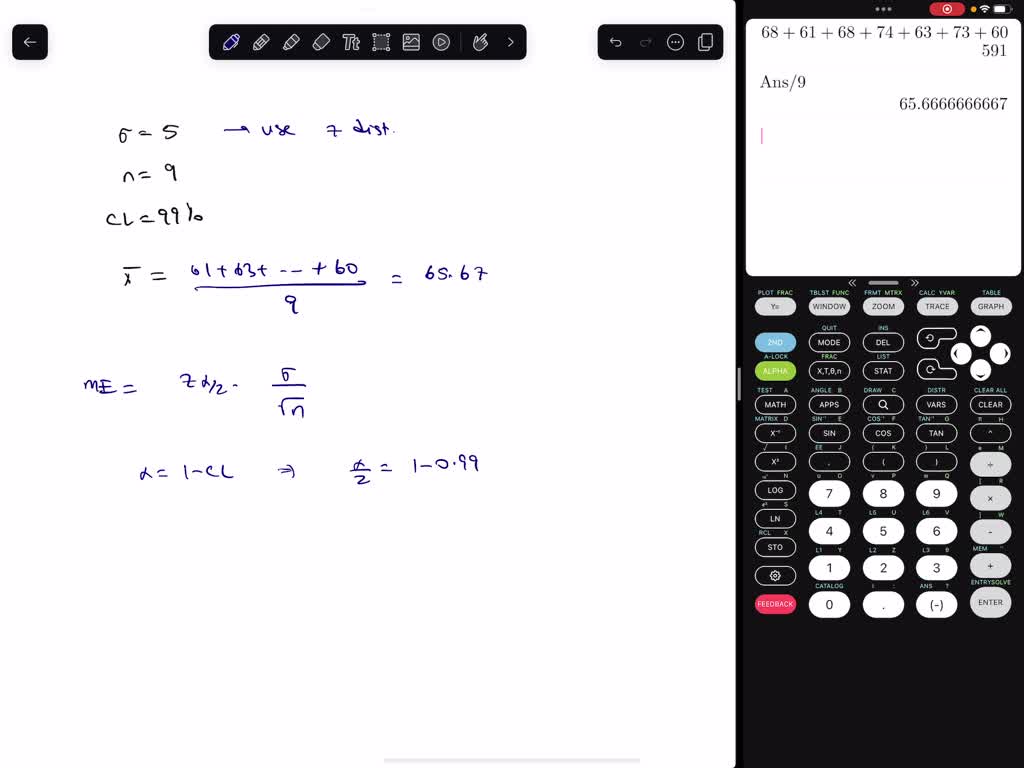 σ = 5 → use z dist.
n = 9
CL = 99%
x̄ = (61+63+ -- +60)/9 = 65.67
ME = zα/2 · σ/√n
α = 1-CL ⇒ α/2 = 1-0.99
Tt
68 + 61 + 68 + 74 + 63 + 73 + 60
591
Ans/9
65.6666666667
PLOT FRAC TBLST FUNC FRMT MTRX CALC YVAR TABLE
Y= WINDOW ZOOM TRACE GRAPH
QUIT INS
2ND MODE DEL
A-LOCK FRAC LIST
ALPHA X,T,θ,n STAT
TEST A ANGLE B DRAW C DISTR CLEAR ALL
MATH APPS VARS CLEAR
MATRIX D SIN⁻¹ E COS⁻¹ F TAN⁻¹ G π H
X⁻¹ SIN COS TAN ^
√ I EE J { K } L e M
X² , ( ) ÷
N u O v P w Q [ R
LOG 7 8 9 ×
S L4 T L5 U L6 V ] W
LN 4 5 6 -
RCL X L1 Y L2 Z L3 θ MEM "
STO 1 2 3 +
CATALOG i : ANS ? ENTRYSOLVE
FEEDBACK 0 . (-) ENTER